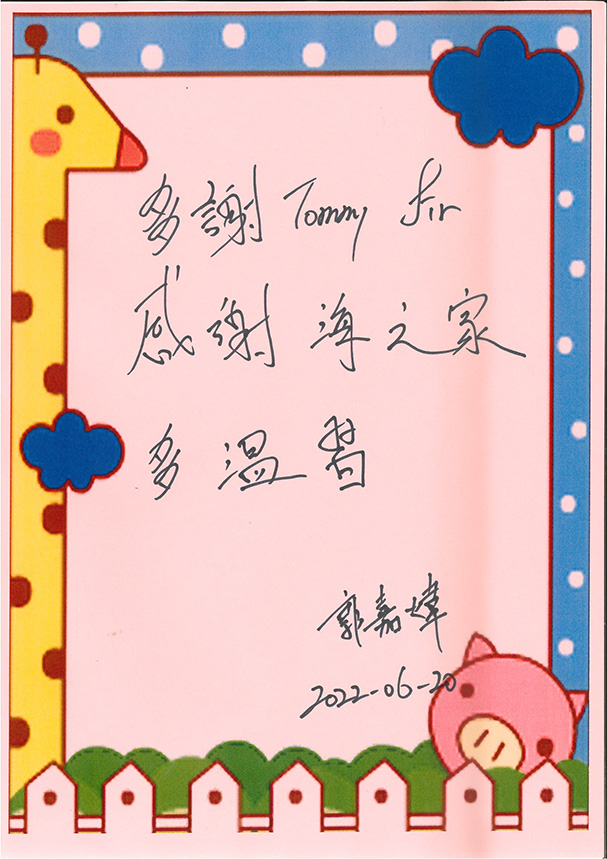 多謝 Tommy Sir
感謝海之家
多溫習
郭嘉煒
2022-06-20